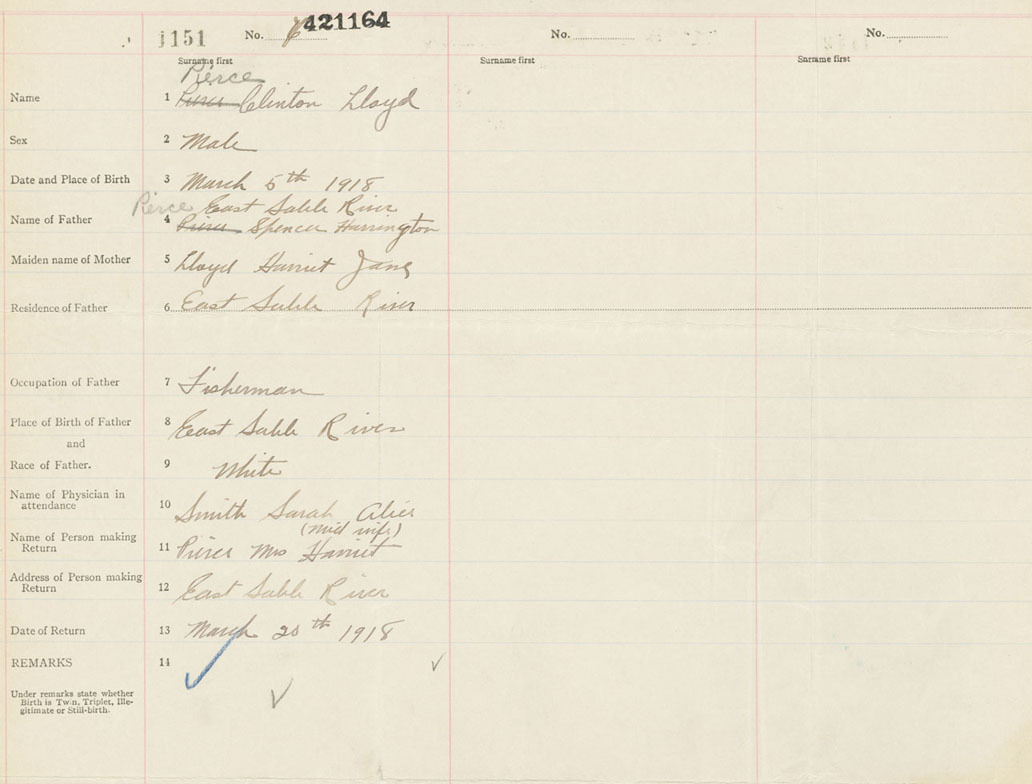 1151 No. 6 421164 No. No.
Surname first Surname first Surname first
Pierce
Name 1 Pierce Clinton Lloyd
Sex 2 Male
Date and Place of Birth 3 March 5th 1918
Pierce East Sable River
Name of Father 4 Pierce Spencer Harrington
Maiden name of Mother 5 Lloyd Harriet Jane
Residence of Father 6 East Sable River
Occupation of Father 7 Fisherman
Place of Birth of Father 8 East Sable River
and
Race of Father. 9 White
Name of Physician in
attendance 10 Smith Sarah Alice
(Mid wife)
Name of Person making
Return 11 Pierce Mrs Harriet
Address of Person making
Return 12 East Sable River
Date of Return 13 March 20th 1918
REMARKS 14
Under remarks state whether
Birth is Twin, Triplet, Ille-
gitimate or Still-birth.